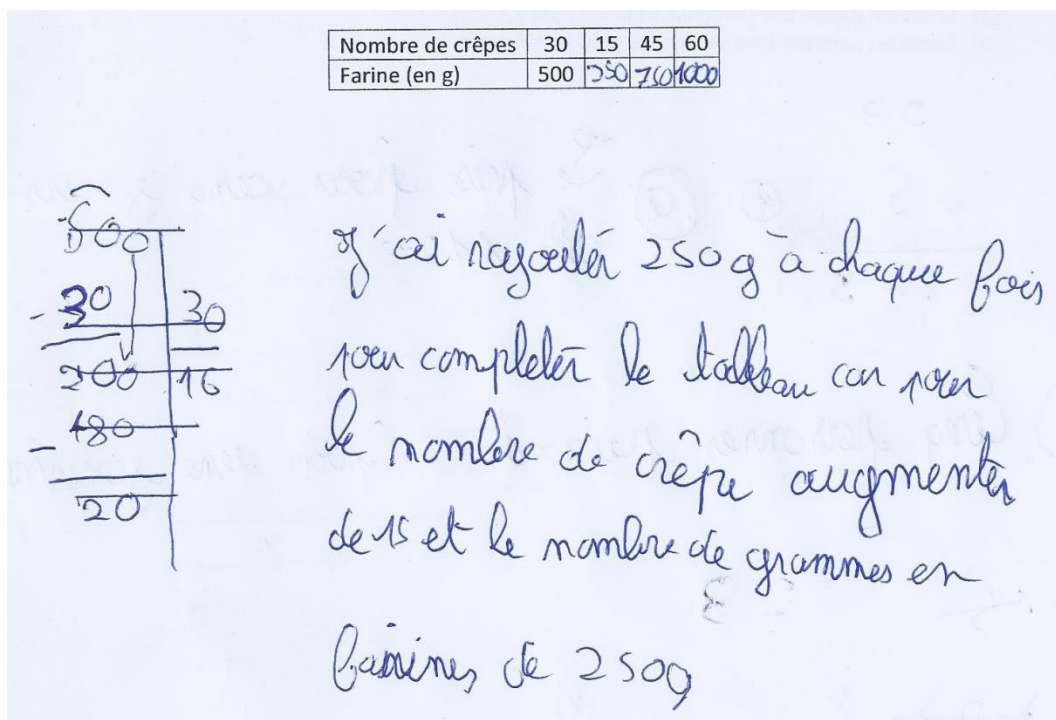 Nombre de crêpes 30 15 45 60
Farine (en g) 500 250 750 1000
500
- 30 30
200 16
- 480
20
J'ai rajoutér 250 g à chaque fois
pour complétér le tableau car pour
le nombre de crêpe augmentér
de 15 et le nombre de grammes en
farines de 250g